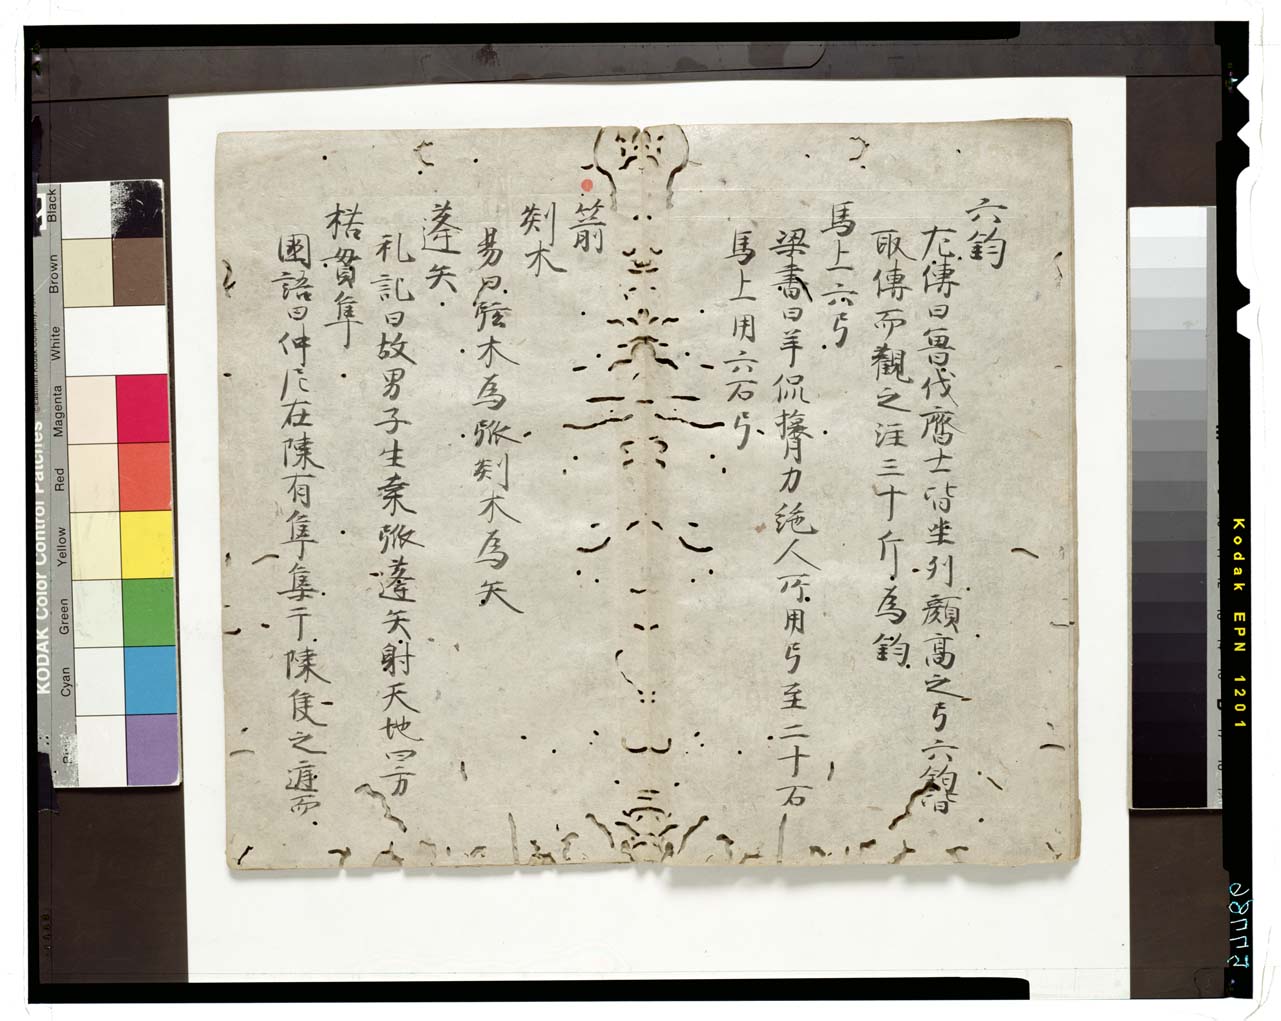 六鈞
左傳曰魯伐齊士皆坐列顔高之弓六鈞皆
取傳而觀之注三十斤為鈞
馬上六弓
梁書曰羊侃膂力絶人所用弓至二十石
馬上用六石弓
箭
剡木
易曰弦木為弧剡木為矢
蓬矢
礼記曰故男子生桒弧蓬矢射天地四方
楛貫隼
國語曰仲尼在陳有隼集于陳侯之庭而
KODAK Color Control Patches
Black
Brown
White
Magenta
Red
Yellow
Green
Cyan
Kodak EPN 1201